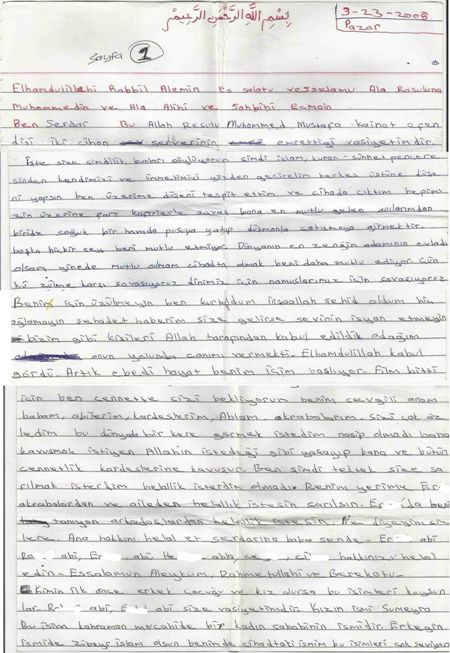 بِسْمِ اللَّهِ الرَّحْمَنِ الرَّحِيمِ
3-23-2008
Pazar
sayfa 1
Elhamdulillahi Rabbil Alemin Es salatu vesselamu Ala Rasuluna
Muhammedin ve Ala Alihi ve Sahbihi Ecmain
Ben Serdar Bu Allah Resulu Muhammed Mustafa kainat efen
disi iki cihan serverinin emrettiği vasiyetimdir.
İşte size şimdilik bunları söylüyorum şimdi islam, kuran-sünnet pencere
sinden kendimizi ve ümmetimizi gözden geçirelim herkes üstüne düşe
ni yapsın ben üzerime düşeni tespit ettim ve cihada çıktım hepimi
zin üzerine farz kafirlerle savaş bana en mutlu gelen anılarımdan
biride soğuk bir havada pusuya yatıp düşmanla çatışmaya girmektir.
başta hiçbir şey beni mutlu etmiyor. Dünyanın en zengin adamının evladı
olsam yinede mutlu olmam cihadta olmak beni daha mutlu ediyor çün
kü zülme karşı savaşıyoruz dinimiz için namuslarımız için savaşıyoruz
Benim için üzülmeyin ben kurtuldum inşaallah şehid oldum hiç
ağlamayın şehadet haberim size gelirse sevinin isyan etmeyin
bizim gibi kişileri Allah tarafından kabul edildik adağım
onun yolunda canımı vermekti. Elhamdulillah kabul
gördü. Artık ebedi hayat benim için başlıyor. Film bitti
için ben cennette sizi bekliyorum benim sevgili anam
babam, abilerim, kardeşlerim, Ablam, akrabalarım. sizi çok öz
ledim bu dünyada bir kere görmek istedim nasip olmadı bana
kavuşmak istiyen Allahın istediği gibi yaşayıp bana ve bütün
cennetlik kardeşlerine kavuşur. Ben şimdi tektek size sa
rılmak isterdim helallik isterdim olmadı Benim yerime Er
akrabalardan ve aileden helallik istesin sarılsın. Er 'da beni
tanıyan arkadaşlardan helallik istesin. Ne diyeyim siz
lere. Ana hakkını helal et serdarına baba sende. E abi
Ra abi, Er abi He abla, hakkınızı helal
edin - Essalamun Aleykum, Rahmetullahi ve Berekatu -
Kimin ilk önce erkek çocuğu ve kız olursa bu isimleri koysun
lar. R abi, E abi size vasiyetimdir. Kızın ismi Sumeyra
Bu isim kahraman mucahide bir kadın sahabinin ismidir. Erkeğin
ismide zübeyr islam olsun benimde cihadtaki ismim bu isimleri çok seviyorum